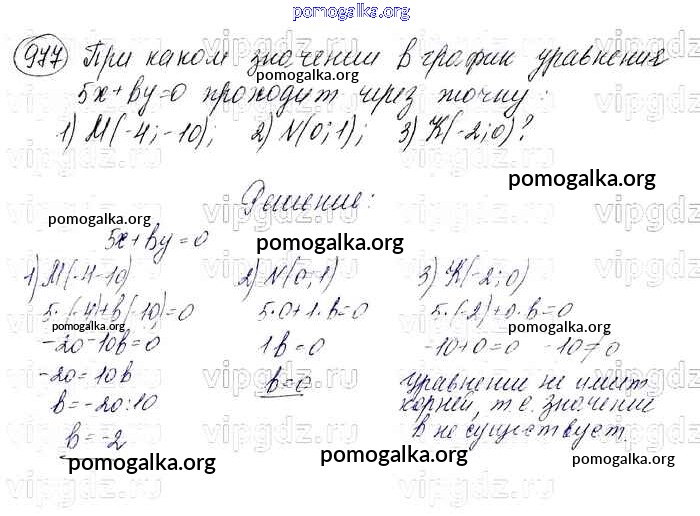 pomogalka.org
977 При каком значении в график уравнения
pomogalka.org
5х+ву=0 проходит через точку:
1) М(-4;-10); 2) N(0;1); 3) К(-2;0)?
pomogalka.org
Решение:
pomogalka.org
pomogalka.org
5х+ву=0
1) М(-4-10) 2) N(0;1) 3) К(-2;0)
5·(-4)+в(-10)=0 5·0+1·в=0 5·(-2)+0·в=0
pomogalka.org pomogalka.org
-20-10в=0 1в=0 -10+0=0 -10≠0
-20=10в в=0 Уравнение не имеет
pomogalka.org
в=-20:10 корней, т.е. значения
в=-2 в не существует.
pomogalka.org pomogalka.org pomogalka.org
vipgdz.ru